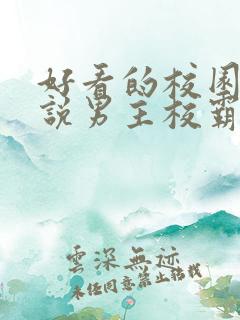 好看的校園
說男主校霸
雲深無迹
未经同意禁止转载